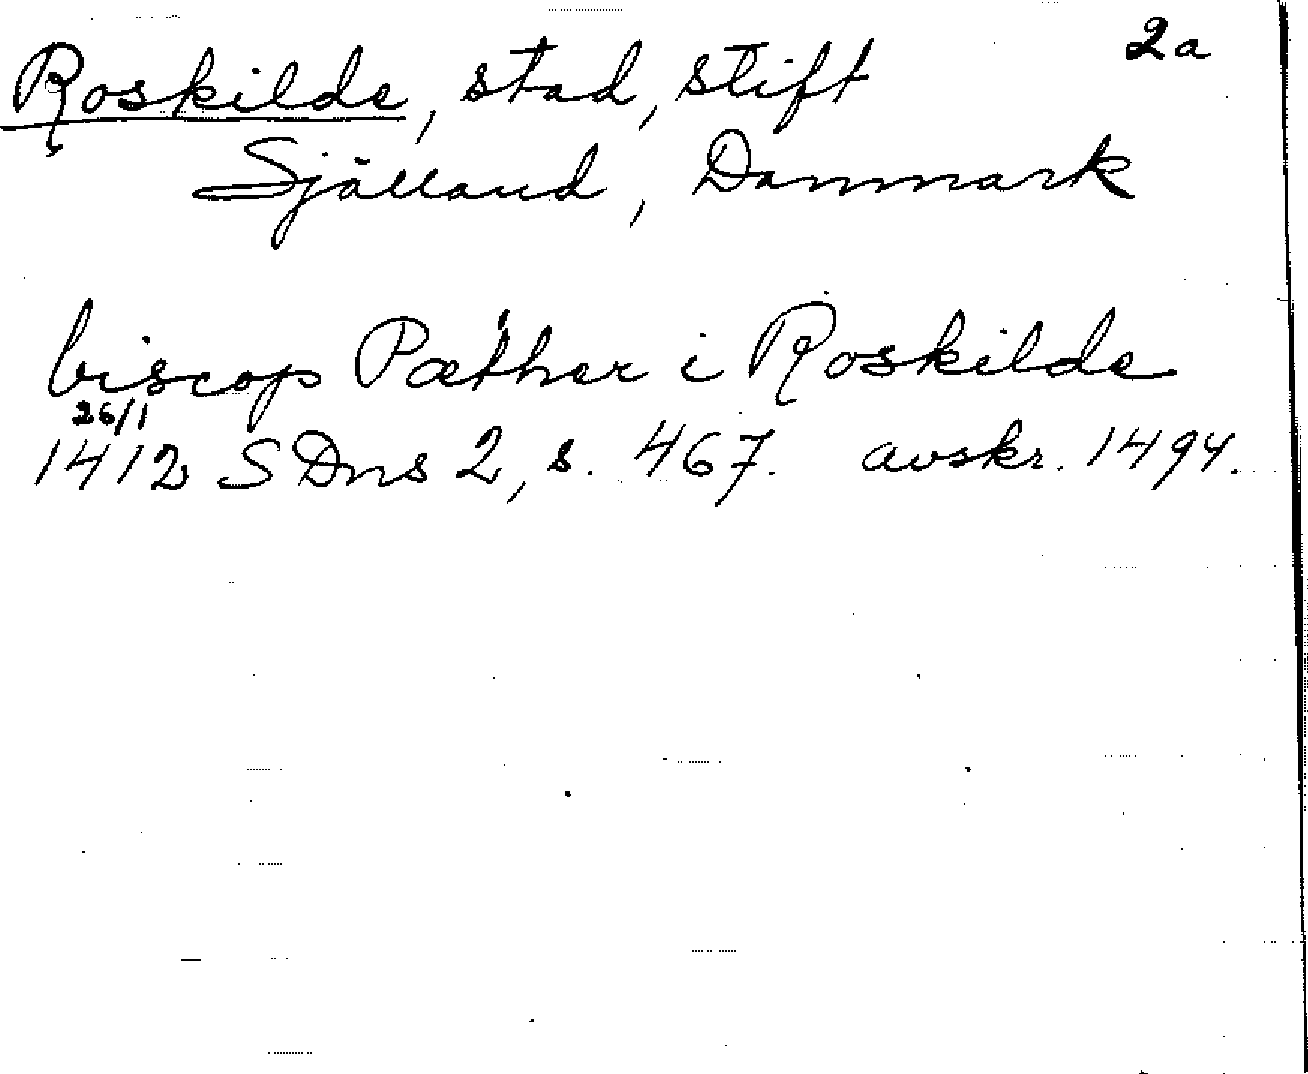 2a
Roskilde, stad, stift
Själland, Danmark
biscop Pæther i Roskilde
26/1
1412 SDns 2, s. 467. avskr. 1494.